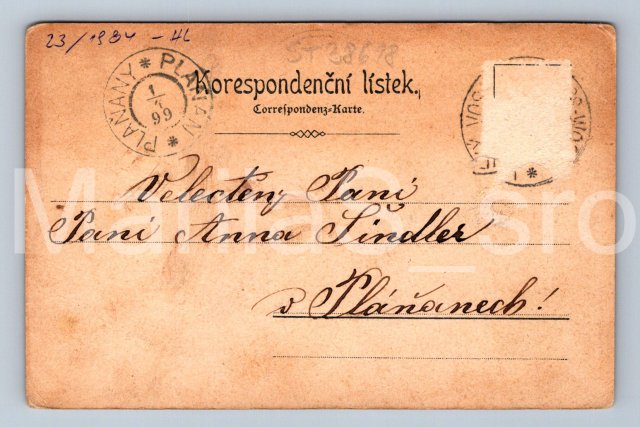 23/1984 - HL
ST 38618
PLAŇANY * PLANIAN *
1
99
Korespondenční lístek.
Correspondenz-Karte.
Velectěný Paní
Paní Anna Šindler
v Pláňanech!